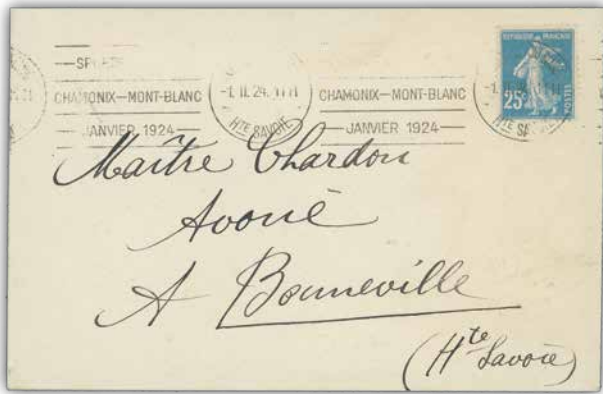 SPORTS
CHAMONIX—MONT-BLANC
JANVIER 1924
-1. II. 24
HTE SAVOIE
CHAMONIX—MONT-BLANC
JANVIER 1924
REPUBLIQUE FRANÇAISE
25c
POSTES
-1.
HTE SA
Maître Chardon
Avoué
A Bonneville
(Hte Savoie)